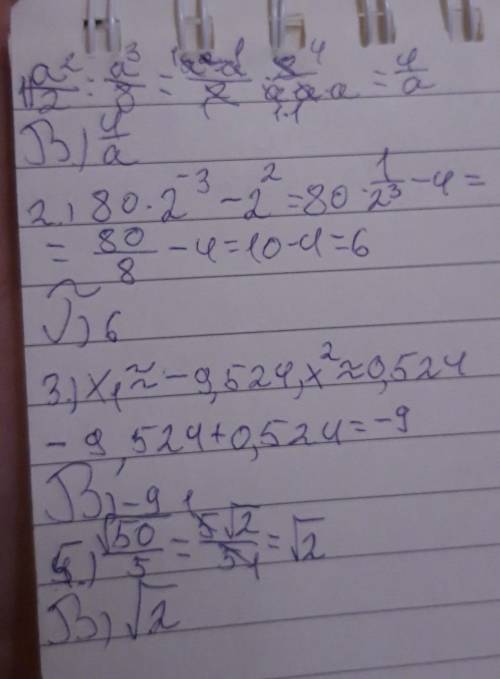 1) a²/2 : a³/8 = a·a/2 · 8/a·a·a = 4/a
В) 4/a
2.) 80·2⁻³ - 2² = 80·1/2³ - 4 =
= 80/8 - 4 = 10 - 4 = 6
6
3.) x₁ ≈ -9,524, x² ≈ 0,524
-9,524 + 0,524 = -9
В) -9
√50/5 = 5√2/5 = √2
В) √2